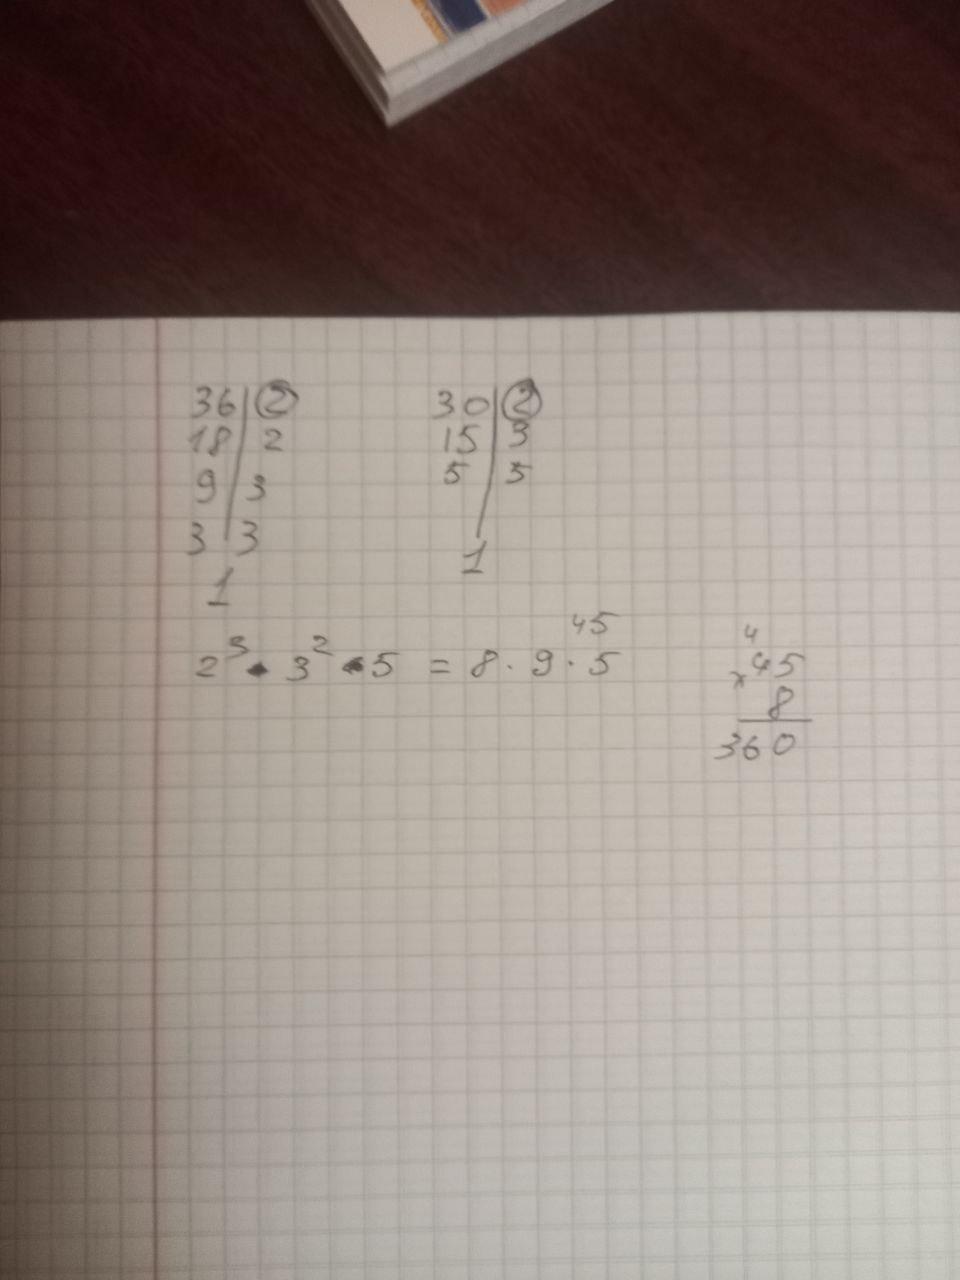 36 | 2
18 | 2
9 | 3
3 | 3
1
30 | 2
15 | 3
5 | 5
1
2³ · 3² · 5 = 8 · 9 · 5
45
4
× 45
8
360